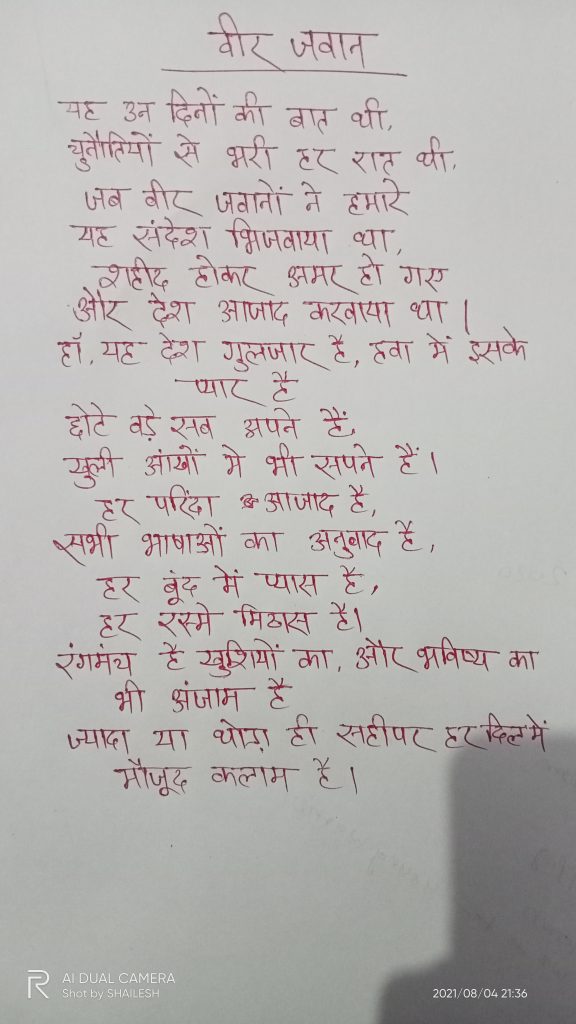 वीर जवान
यह उन दिनों की बात थी,
चुनौतियों से भरी हर रात थी,
जब वीर जवानों ने हमारे
यह संदेश भिजवाया था,
शहीद होकर अमर हो गए
और देश आजाद करवाया था।
हाँ, यह देश गुलजार है, हवा में इसके
प्यार है
छोटे बड़े सब अपने हैं,
खुली आंखों मे भी सपने हैं।
हर परिंदा आजाद है,
सभी भाषाओं का अनुवाद है,
हर बूंद में प्यास है,
हर रस्मे मिठास है।
रंगमंच है खुशियों का, और भविष्य का
भी अंजाम है
ज्यादा या थोड़ा ही सही पर हर दिल में
मौजूद कलाम है।
AI DUAL CAMERA
Shot by SHAILESH
2021/08/04 21:36